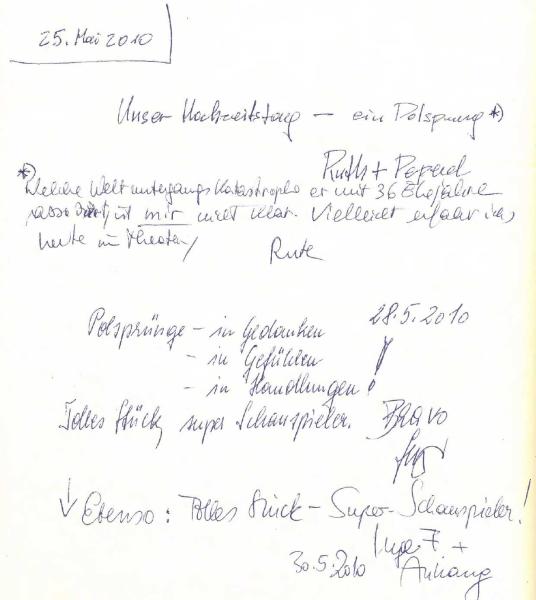 25. Mai 2010
Unser Hochzeitstag – ein Polsprung *)
Ruth +
*) Welche Weltuntergangskatastrophe er mit 36 Ehejahre
ist mir nicht klar. Vielleicht erfahr ich's
heute im Theater/
Rute
28.5.2010
Polsprünge – in Gedanken
– in Gefühlen
– in Handlungen!
Tolles Stück, super Schauspieler. Bravo
↓ Ebenso: Tolles Stück – Super-Schauspieler!
Inge F. +
30.5.2010 Anhang